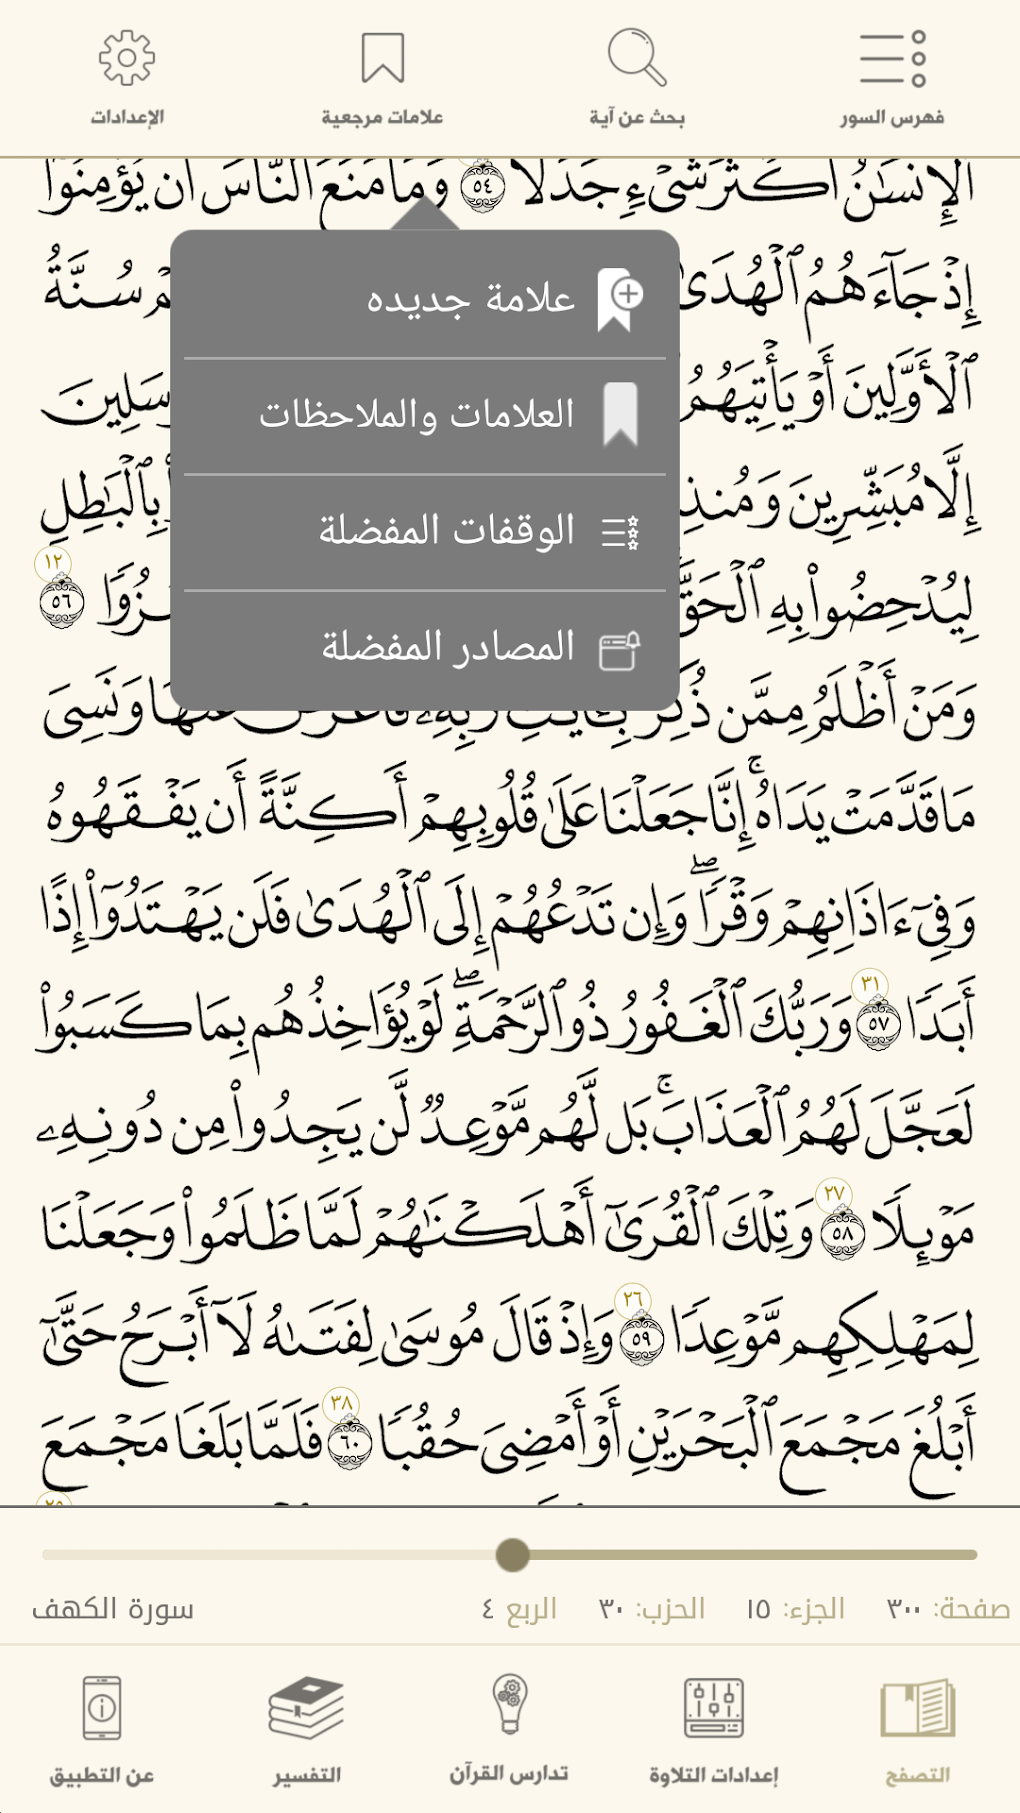 فهرس السور
بحث عن آية
علامات مرجعية
الإعدادات
ٱلْإِنسَٰنُ أَكْثَرَ شَىْءٍ جَدَلًا ٥٤ وَمَا مَنَعَ ٱلنَّاسَ أَن يُؤْمِنُوٓا۟
إِذْ جَآءَهُمُ ٱلْهُدَىٰ سُنَّةُ
ٱلْأَوَّلِينَ أَوْ يَأْتِيَهُمُ
إِلَّا مُبَشِّرِينَ وَمُنذِ بِٱلْبَٰطِلِ
١٢
لِيُدْحِضُوا۟ بِهِ ٱلْحَقَّ ٥٦
علامة جديده
العلامات والملاحظات
الوقفات المفضلة
المصادر المفضلة
وَمَنْ أَظْلَمُ مِمَّن ذُكِّرَ بِـَٔايَٰتِ رَبِّهِۦ فَأَعْرَضَ عَنْهَا وَنَسِىَ
مَا قَدَّمَتْ يَدَاهُ ۚ إِنَّا جَعَلْنَا عَلَىٰ قُلُوبِهِمْ أَكِنَّةً أَن يَفْقَهُوهُ
وَفِىٓ ءَاذَانِهِمْ وَقْرًا ۖ وَإِن تَدْعُهُمْ إِلَى ٱلْهُدَىٰ فَلَن يَهْتَدُوٓا۟ إِذًا
٣١
أَبَدًا ٥٧ وَرَبُّكَ ٱلْغَفُورُ ذُو ٱلرَّحْمَةِ ۖ لَوْ يُؤَاخِذُهُم بِمَا كَسَبُوا۟
لَعَجَّلَ لَهُمُ ٱلْعَذَابَ ۚ بَل لَّهُم مَّوْعِدٌ لَّن يَجِدُوا۟ مِن دُونِهِۦ
٢٧
مَوْئِلًا ٥٨ وَتِلْكَ ٱلْقُرَىٰٓ أَهْلَكْنَٰهُمْ لَمَّا ظَلَمُوا۟ وَجَعَلْنَا
٢٦
لِمَهْلِكِهِم مَّوْعِدًا ٥٩ وَإِذْ قَالَ مُوسَىٰ لِفَتَىٰهُ لَآ أَبْرَحُ حَتَّىٰٓ
٣٨
أَبْلُغَ مَجْمَعَ ٱلْبَحْرَيْنِ أَوْ أَمْضِىَ حُقُبًا ٦٠ فَلَمَّا بَلَغَا مَجْمَعَ
صفحة: ٣٠٠ الجزء: ١٥ الحزب: ٣٠ الربع ٤ سورة الكهف
التصفح
إعدادات التلاوة
تدارس القرآن
التفسير
عن التطبيق